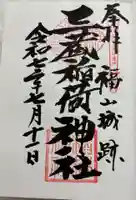 奉拝
福山城跡
三蔵稲荷神社
令和七年七月十二日